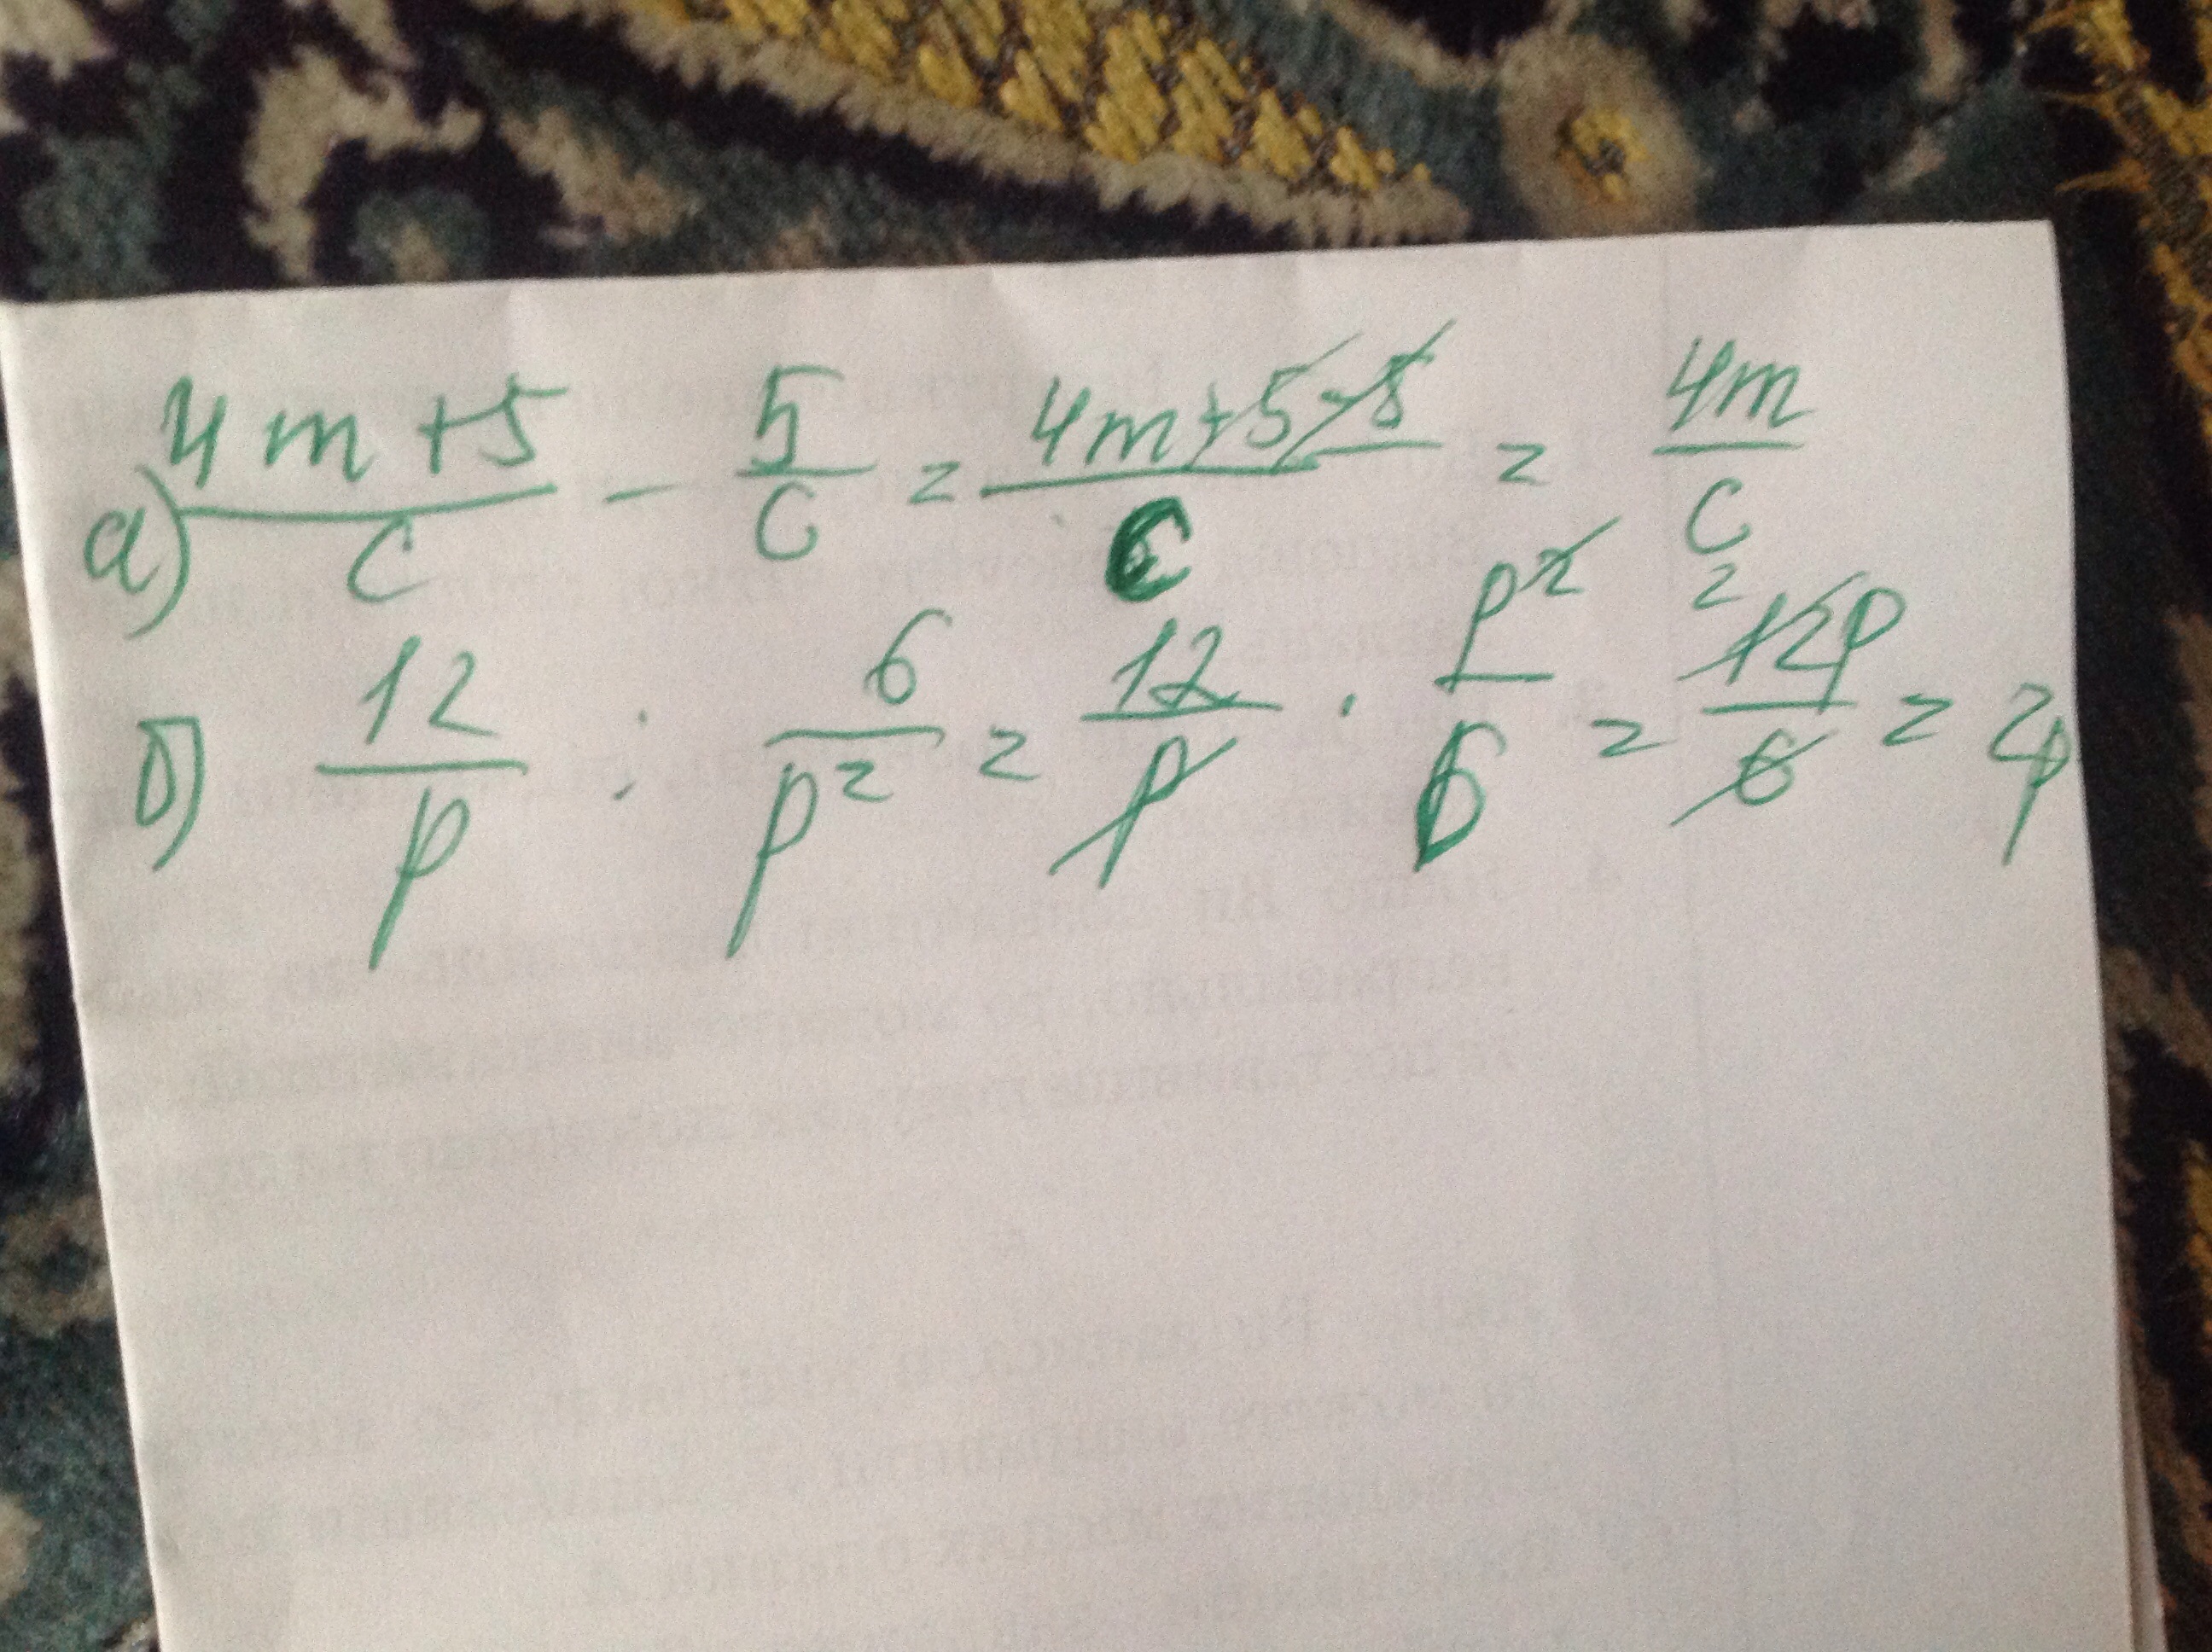 а) (4m+5)/c - 5/c = (4m+5-5)/c = 4m/c
б) 12/p : 6/p² = 12/p · p²/6 = ²12p/6 = 2p